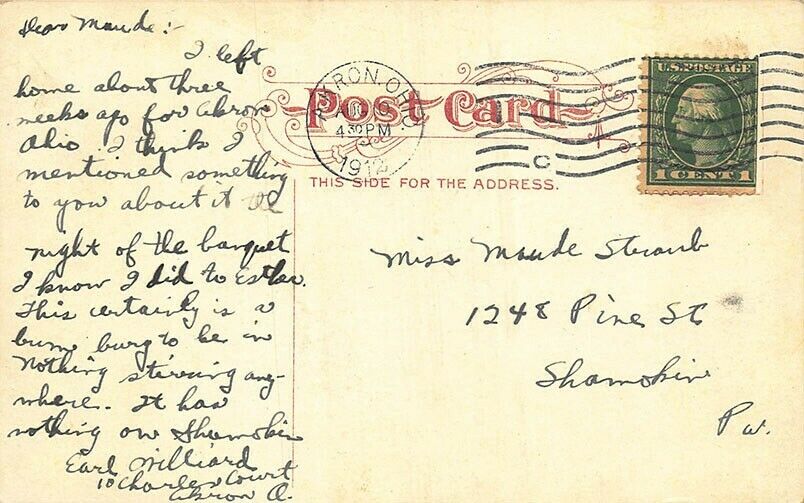 Dear Maude:-
I left
home about three
weeks ago for Akron
Ohio. I think I
mentioned something
to you about it
night of the banquet
I know I did to Esther.
This certainly is a
bum burg to be in
Nothing stirring any-
where. It has
nothing on Shamokin
Earl Williard
10 Charles Court
Akron O.
AKRON, OHIO
AUG
4 30 PM
1912
C
Post Card
THIS SIDE FOR THE ADDRESS.
U.S. POSTAGE
1 CENT 1
Miss Maude Straub
1248 Pine St
Shamokin
Pa.